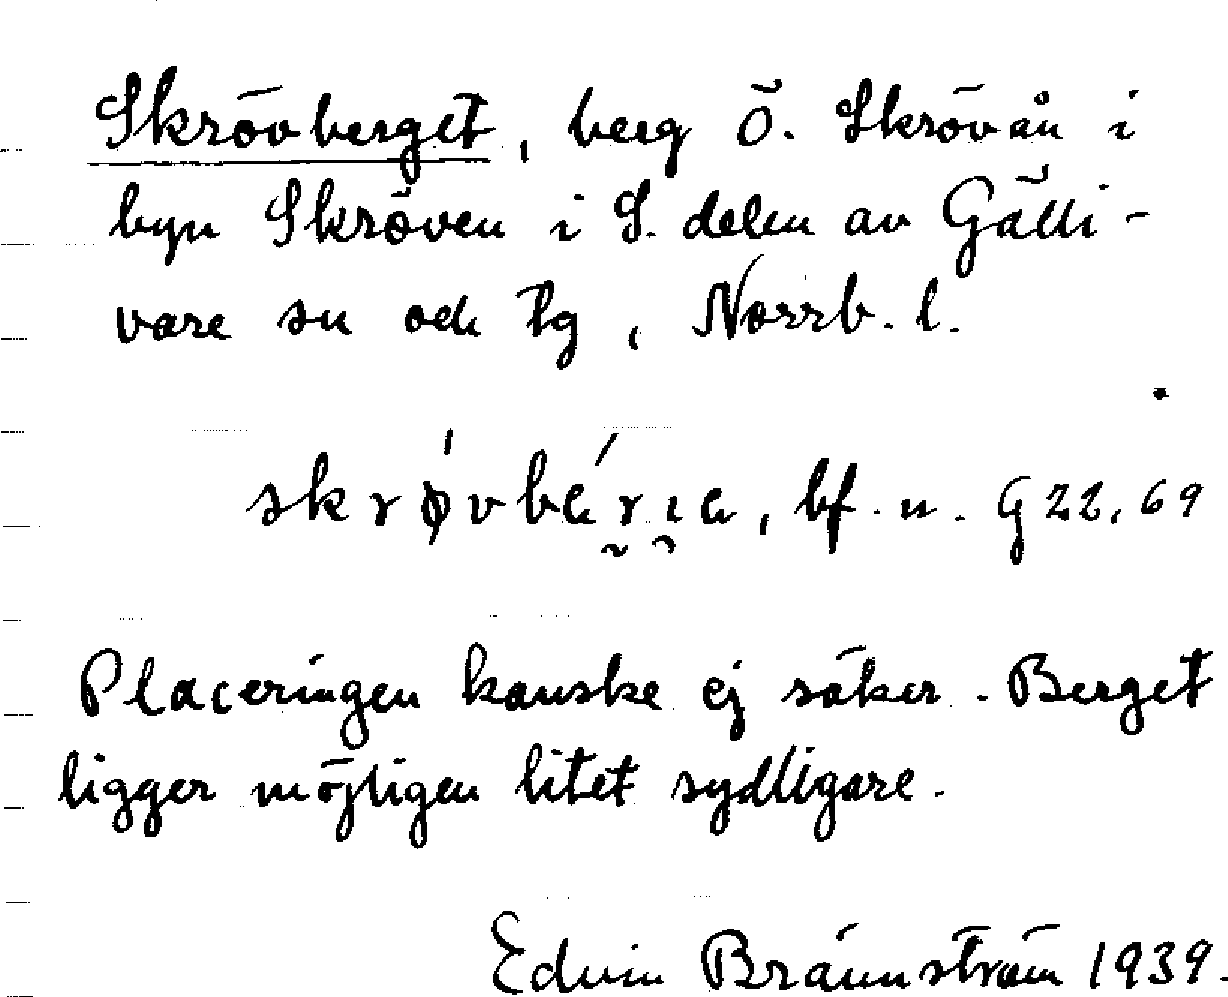 Skrövberget, berg Ö. Skrövån i
byn Skröven i S. delen av Gälli-
vare sn och tg, Norrb. l.
bf. n. G 22, 69
Placeringen kanske ej säker. Berget
ligger möjligen litet sydligare.
Edvin Brännström 1939.